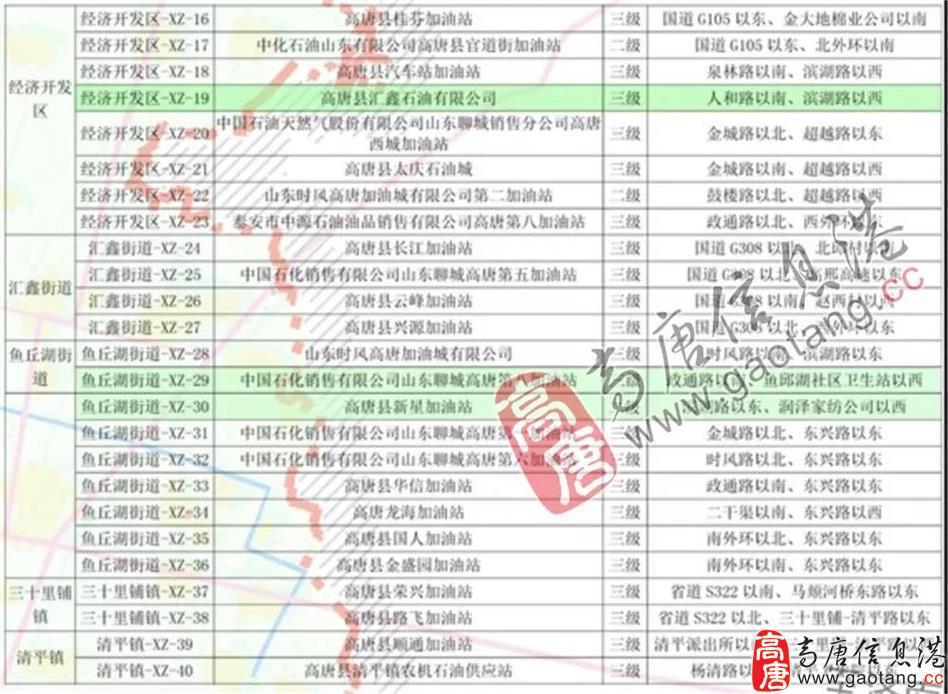 经济开发区
经济开发区-XZ-16 高唐县桂芬加油站 三级 国道 G105 以东、金大地棉业公司以南
经济开发区-XZ-17 中化石油山东有限公司高唐县官道街加油站 二级 国道 G105 以东、北外环以南
经济开发区-XZ-18 高唐县汽车站加油站 三级 泉林路以南、滨湖路以西
经济开发区-XZ-19 高唐县汇鑫石油有限公司 三级 人和路以南、滨湖路以西
经济开发区-XZ-20 中国石油天然气股份有限公司山东聊城销售分公司高唐西城加油站 三级 金城路以北、超越路以东
经济开发区-XZ-21 高唐县太庆石油城 三级 金城路以南、超越路以西
经济开发区-XZ-22 山东时风高唐加油城有限公司第二加油站 二级 鼓楼路以北、超越路以西
经济开发区-XZ-23 泰安市中源石油油品销售有限公司高唐第八加油站 三级 政通路以北、西外
汇鑫街道
汇鑫街道-XZ-24 高唐县长江加油站 三级 国道 G308 以
汇鑫街道-XZ-25 中国石化销售有限公司山东聊城高唐第五加油站 三级 国道 G308 以北 高速以东
汇鑫街道-XZ-26 高唐县云峰加油站 三级 以南 以西
汇鑫街道-XZ-27 高唐县兴源加油站 三级 国道 以东
鱼丘湖街道
鱼丘湖街道-XZ-28 山东时风高唐加油城有限公司 二级 时风路以南、滨湖路以东
鱼丘湖街道-XZ-29 中国石化销售有限公司山东聊城高唐第八加油站 政通路 鱼邱湖社区卫生站以西
鱼丘湖街道-XZ-30 高唐县新星加油站 路以东、润泽家纺公司以西
鱼丘湖街道-XZ-31 中国石化销售有限公司山东聊城高唐第 加油站 三级 金城路以北、东兴路以东
鱼丘湖街道-XZ-32 中国石化销售有限公司山东聊城高唐第六加油站 三级 时风路以北、东兴路以东
鱼丘湖街道-XZ-33 高唐县华信加油站 三级 政通路以南、东兴路以东
鱼丘湖街道-XZ-34 高唐龙海加油站 三级 二干渠以南、东兴路以西
鱼丘湖街道-XZ-35 高唐县国人加油站 三级 南外环以北、东兴路以东
鱼丘湖街道-XZ-36 高唐县金盛园加油站 三级 南外环以南、东兴路以东
三十里铺镇
三十里铺镇-XZ-37 高唐县荣兴加油站 三级 省道 S322 以南、马颊河桥东路以东
三十里铺镇-XZ-38 高唐县路飞加油站 三级 省道 S322 以北、三十里铺-清平路以东
清平镇
清平镇-XZ-39 高唐县顺通加油站 三级 清平派出所以
清平镇-XZ-40 高唐县清平镇农机石油供应站 三级 杨清路以
高唐
高唐信息港
www.gaotang.cc
高唐
高唐信息港
www.gaotang.cc